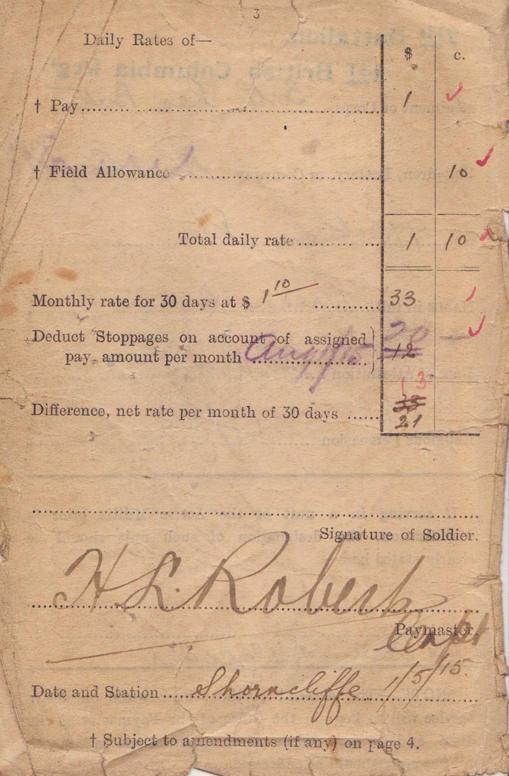 3
Daily Rates of— $ c.
† Pay 1
† Field Allowance 10
Total daily rate 1 10
Monthly rate for 30 days at $ 1 10 33
Deduct Stoppages on account of assigned 20 —
pay, amount per month Aug/15 12
13
Difference, net rate per month of 30 days
21
Signature of Soldier.
H L. Roberts
Paymaster.
Capt
Date and Station Shorncliffe 1/5/15.
† Subject to amendments (if any) on page 4.